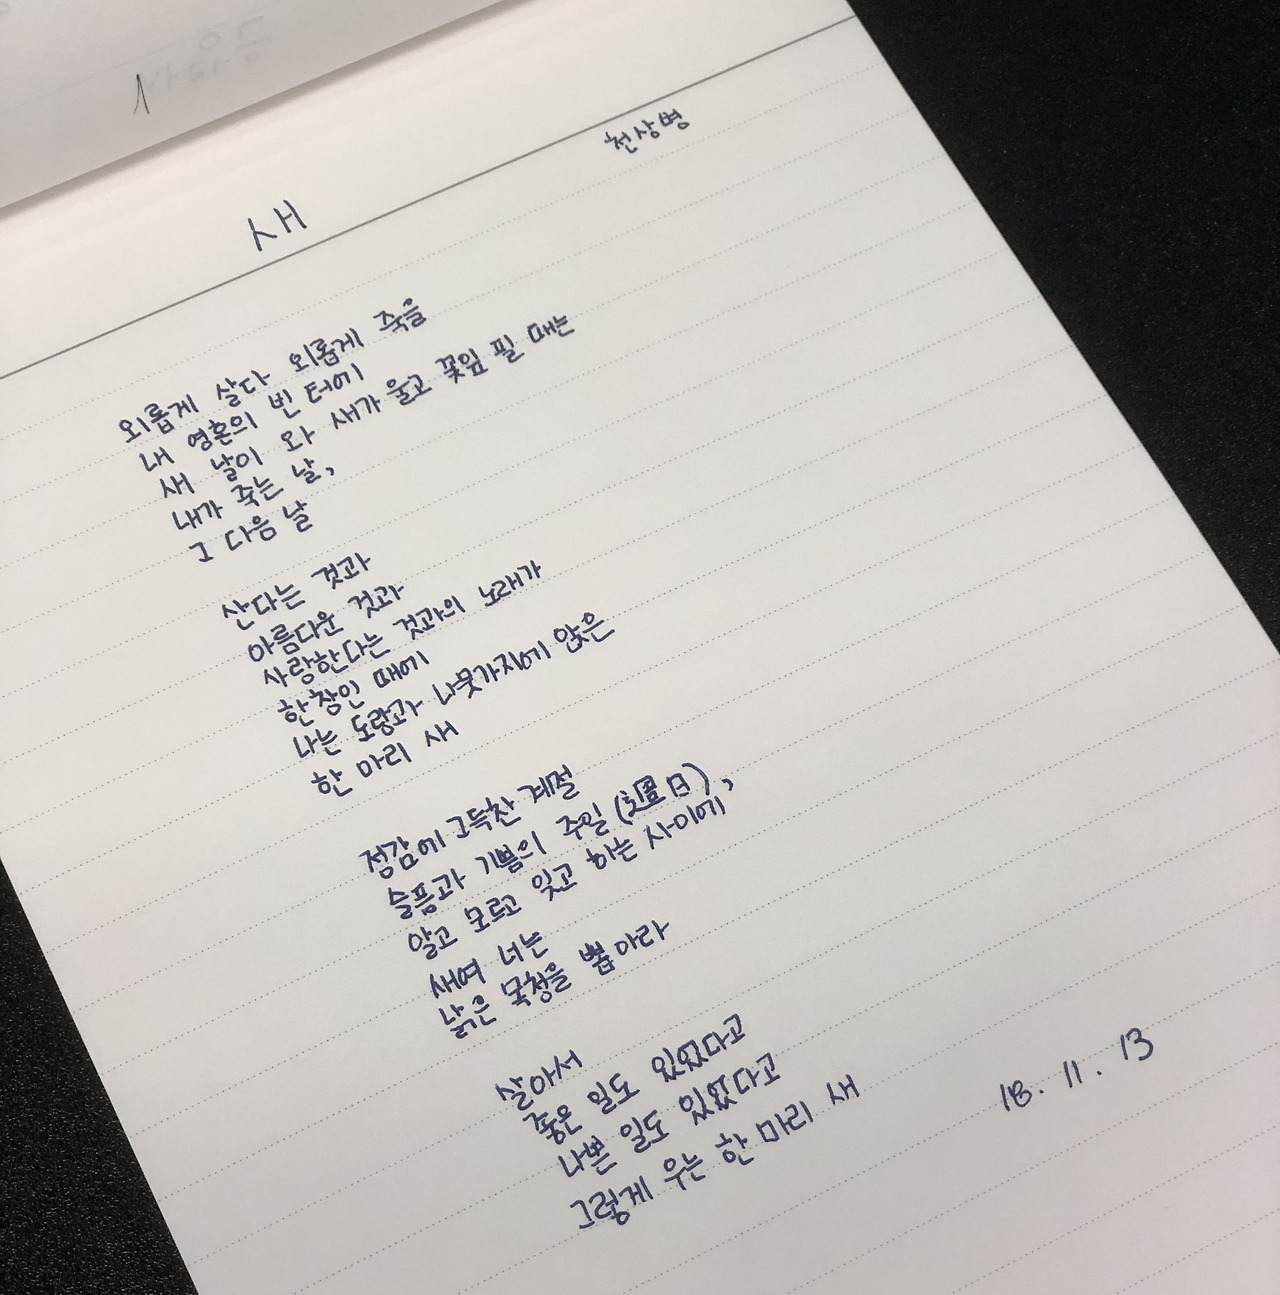 천상병
새
외롭게 살다 외롭게 죽을
내 영혼의 빈 터에
새 날이 와 새가 울고 꽃잎 필 때는
내가 죽는 날,
그 다음 날
산다는 것과
아름다운 것과
사랑한다는 것과의 노래가
한창인 때에
나는 도랑과 나뭇가지에 앉은
한 마리 새
정감에 그득찬 계절
슬픔과 기쁨의 주일(週日),
알고 모르고 잊고 하는 사이에
새여 너는
낡은 목청을 뽑아라
살아서
좋은 일도 있었다고
나쁜 일도 있었다고
그렇게 우는 한 마리 새
18. 11. 13